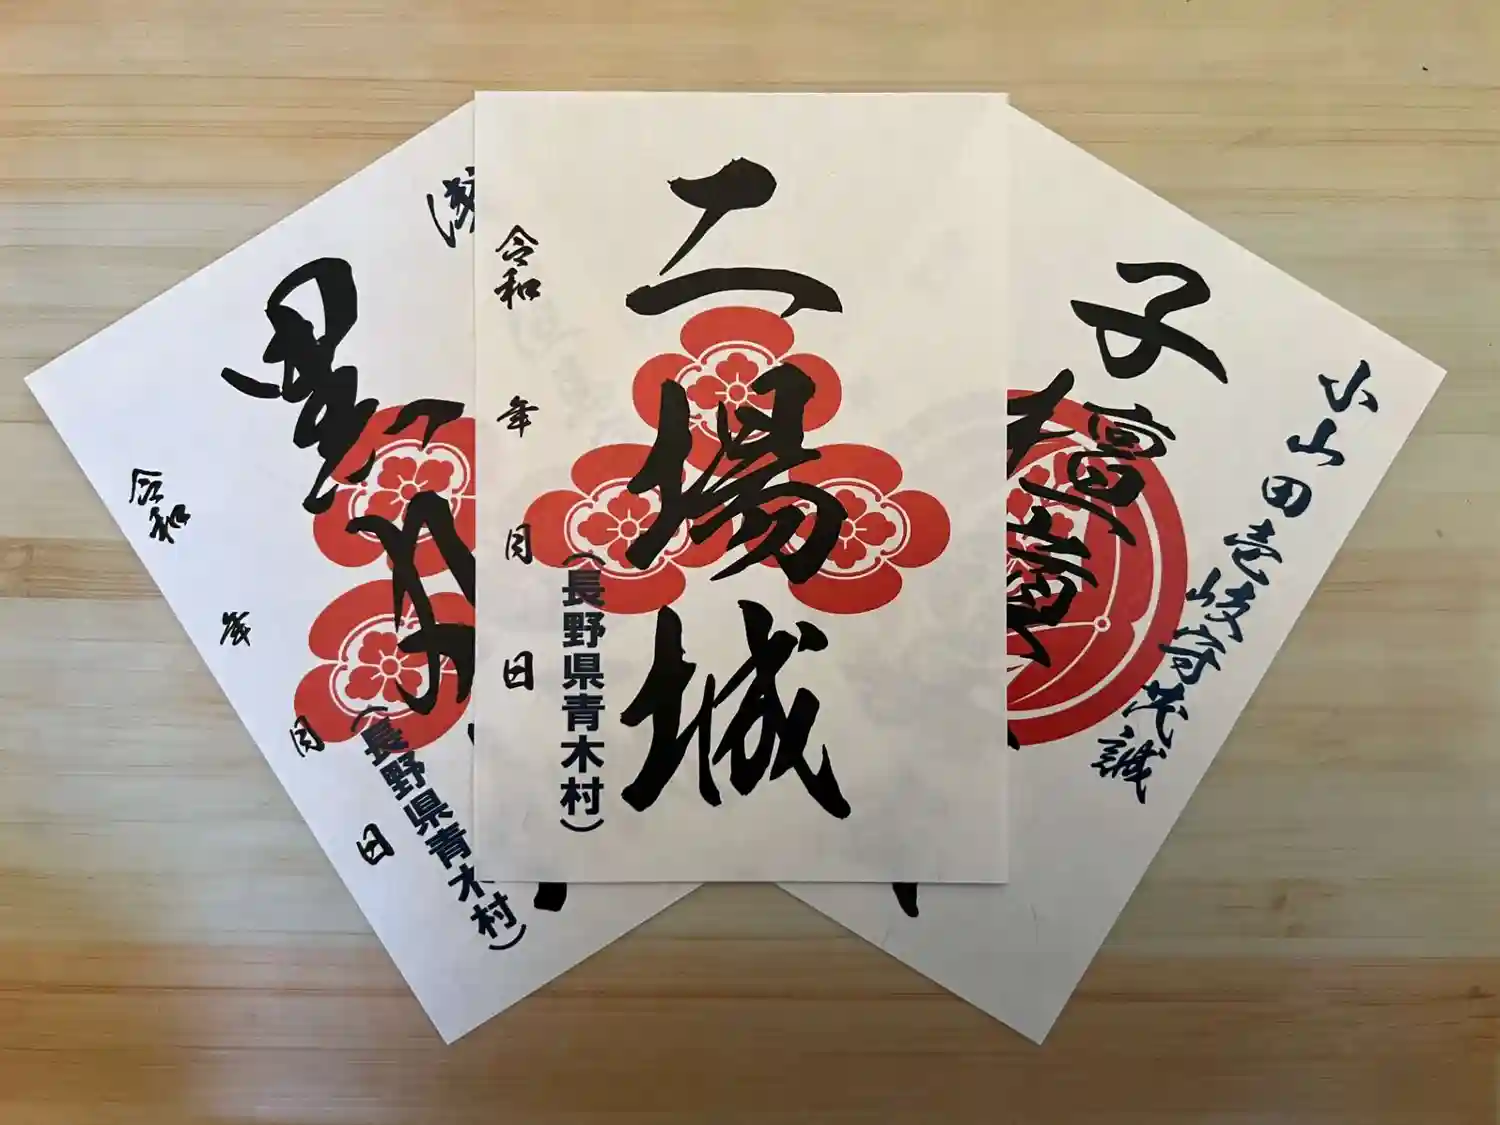 二場城
(長野県青木村)
令和 年 月 日
小山田壱岐守茂誠
子檀嶺
黒
(長野県青木村)
令和 年 月 日